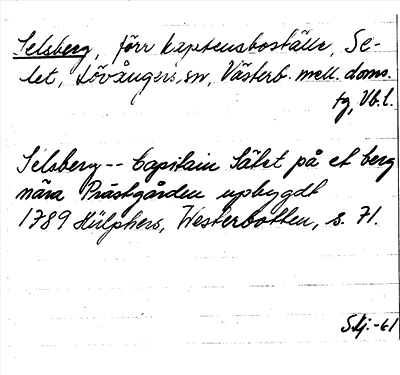 Selsberg, förr kaptensboställe, Se-
let, Lövångers sn, Västerb. mell. doms.
tg, Vb.l.
Selsberg -- Capitain Sätet på et berg
nära Prästgården upbygdt
1789 Hülphers, Westerbotten, s. 71.
Stj.-61